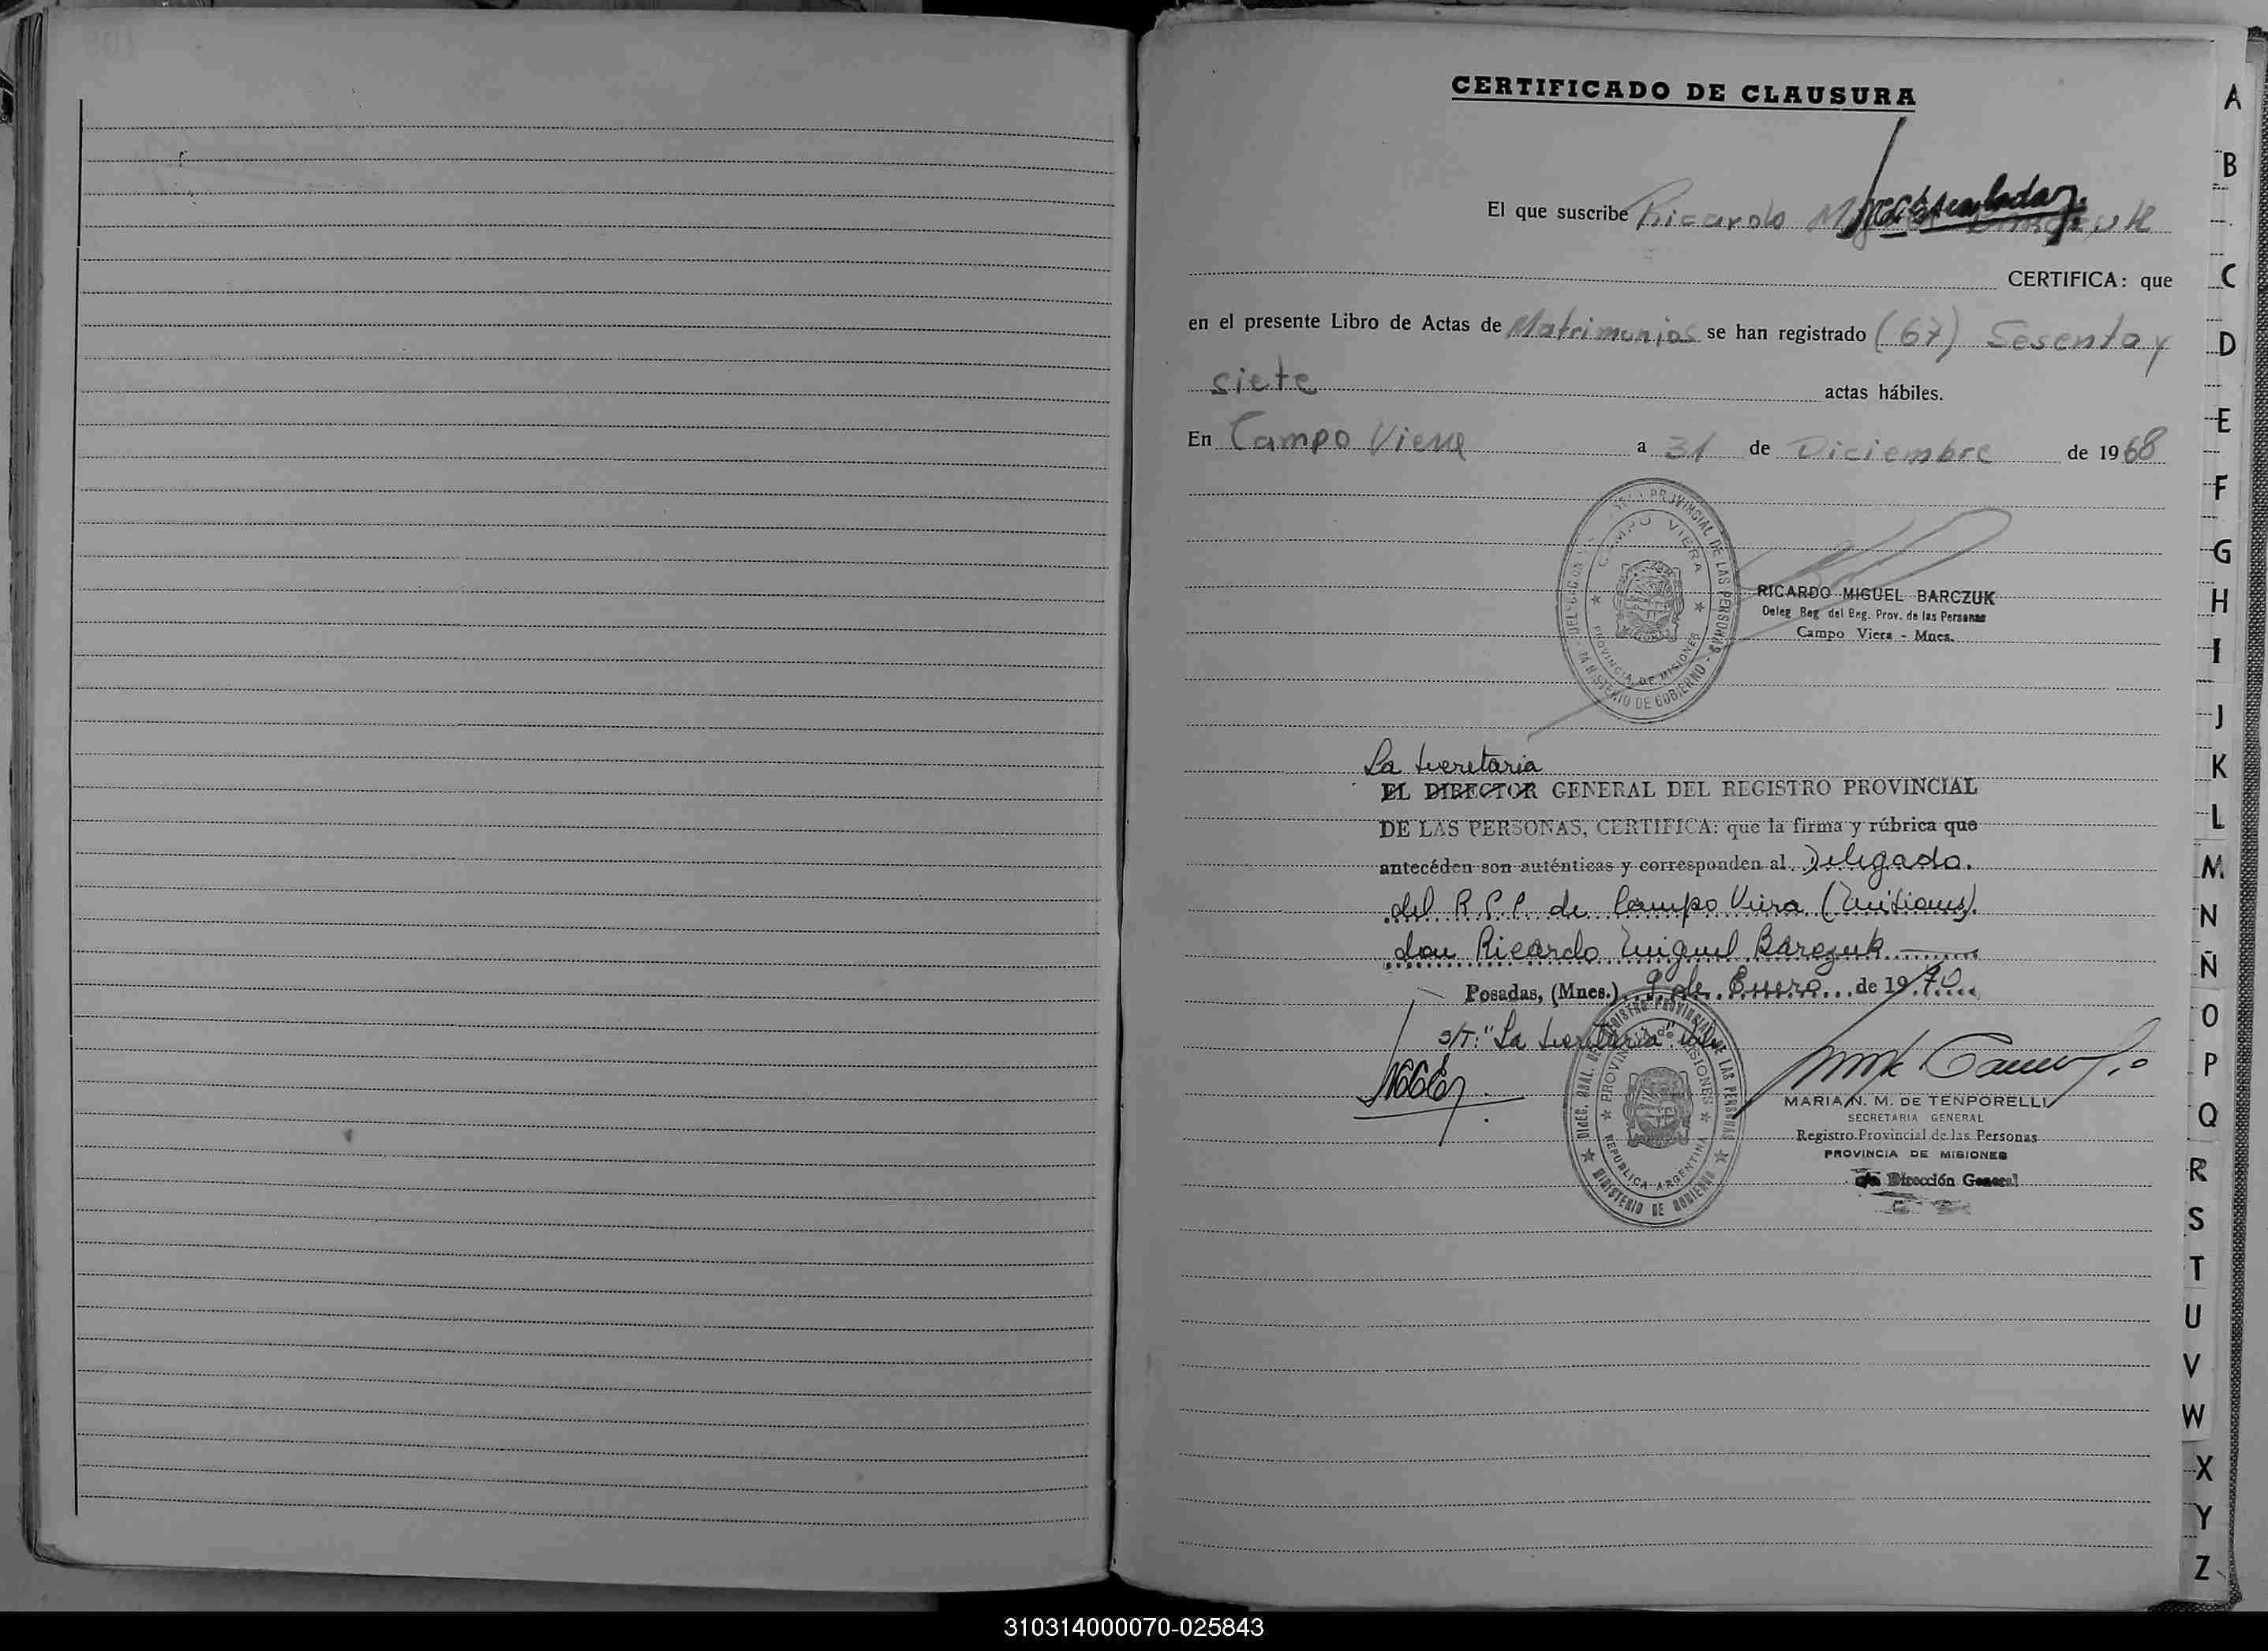 CERTIFICADO DE CLAUSURA
El que suscribe Ricardo
CERTIFICA: que
en el presente Libro de Actas de Matrimonios se han registrado (67) Sesenta y
siete actas hábiles.
En Campo Viera a 31 de Diciembre de 1968
PROVINCIAL DE LAS PERSONAS
CAMPO VIERA
PROVINCIA DE MISIONES
MINISTERIO DE GOBIERNO
RICARDO MIGUEL BARCZUK
Deleg. Reg. del Reg. Prov. de las Personas
Campo Viera - Mnes.
La Secretaria
EL DIRECTOR GENERAL DEL REGISTRO PROVINCIAL
DE LAS PERSONAS, CERTIFICA: que la firma y rúbrica que
antecéden son auténticas y corresponden al Delegado.
del R.P.P. de Campo Viera (Misiones).
don Ricardo Miguel Barczuk
Posadas, (Mnes.) 9 de Enero de 1970
S/T: "La Secretaria". Vale
DIREC. GRAL. DEL REGISTRO PROVINCIAL DE LAS PERSONAS
PROVINCIA de MISIONES
REPUBLICA ARGENTINA
MINISTERIO DE GOBIERNO
MARIA N. M. DE TENPORELLI
SECRETARIA GENERAL
Registro Provincial de las Personas
PROVINCIA DE MISIONES
a/c Dirección General
A
B
C
D
E
F
G
H
I
J
K
L
M
N
Ñ
O
P
Q
R
S
T
U
V
W
X
Y
Z
310314000070-025843